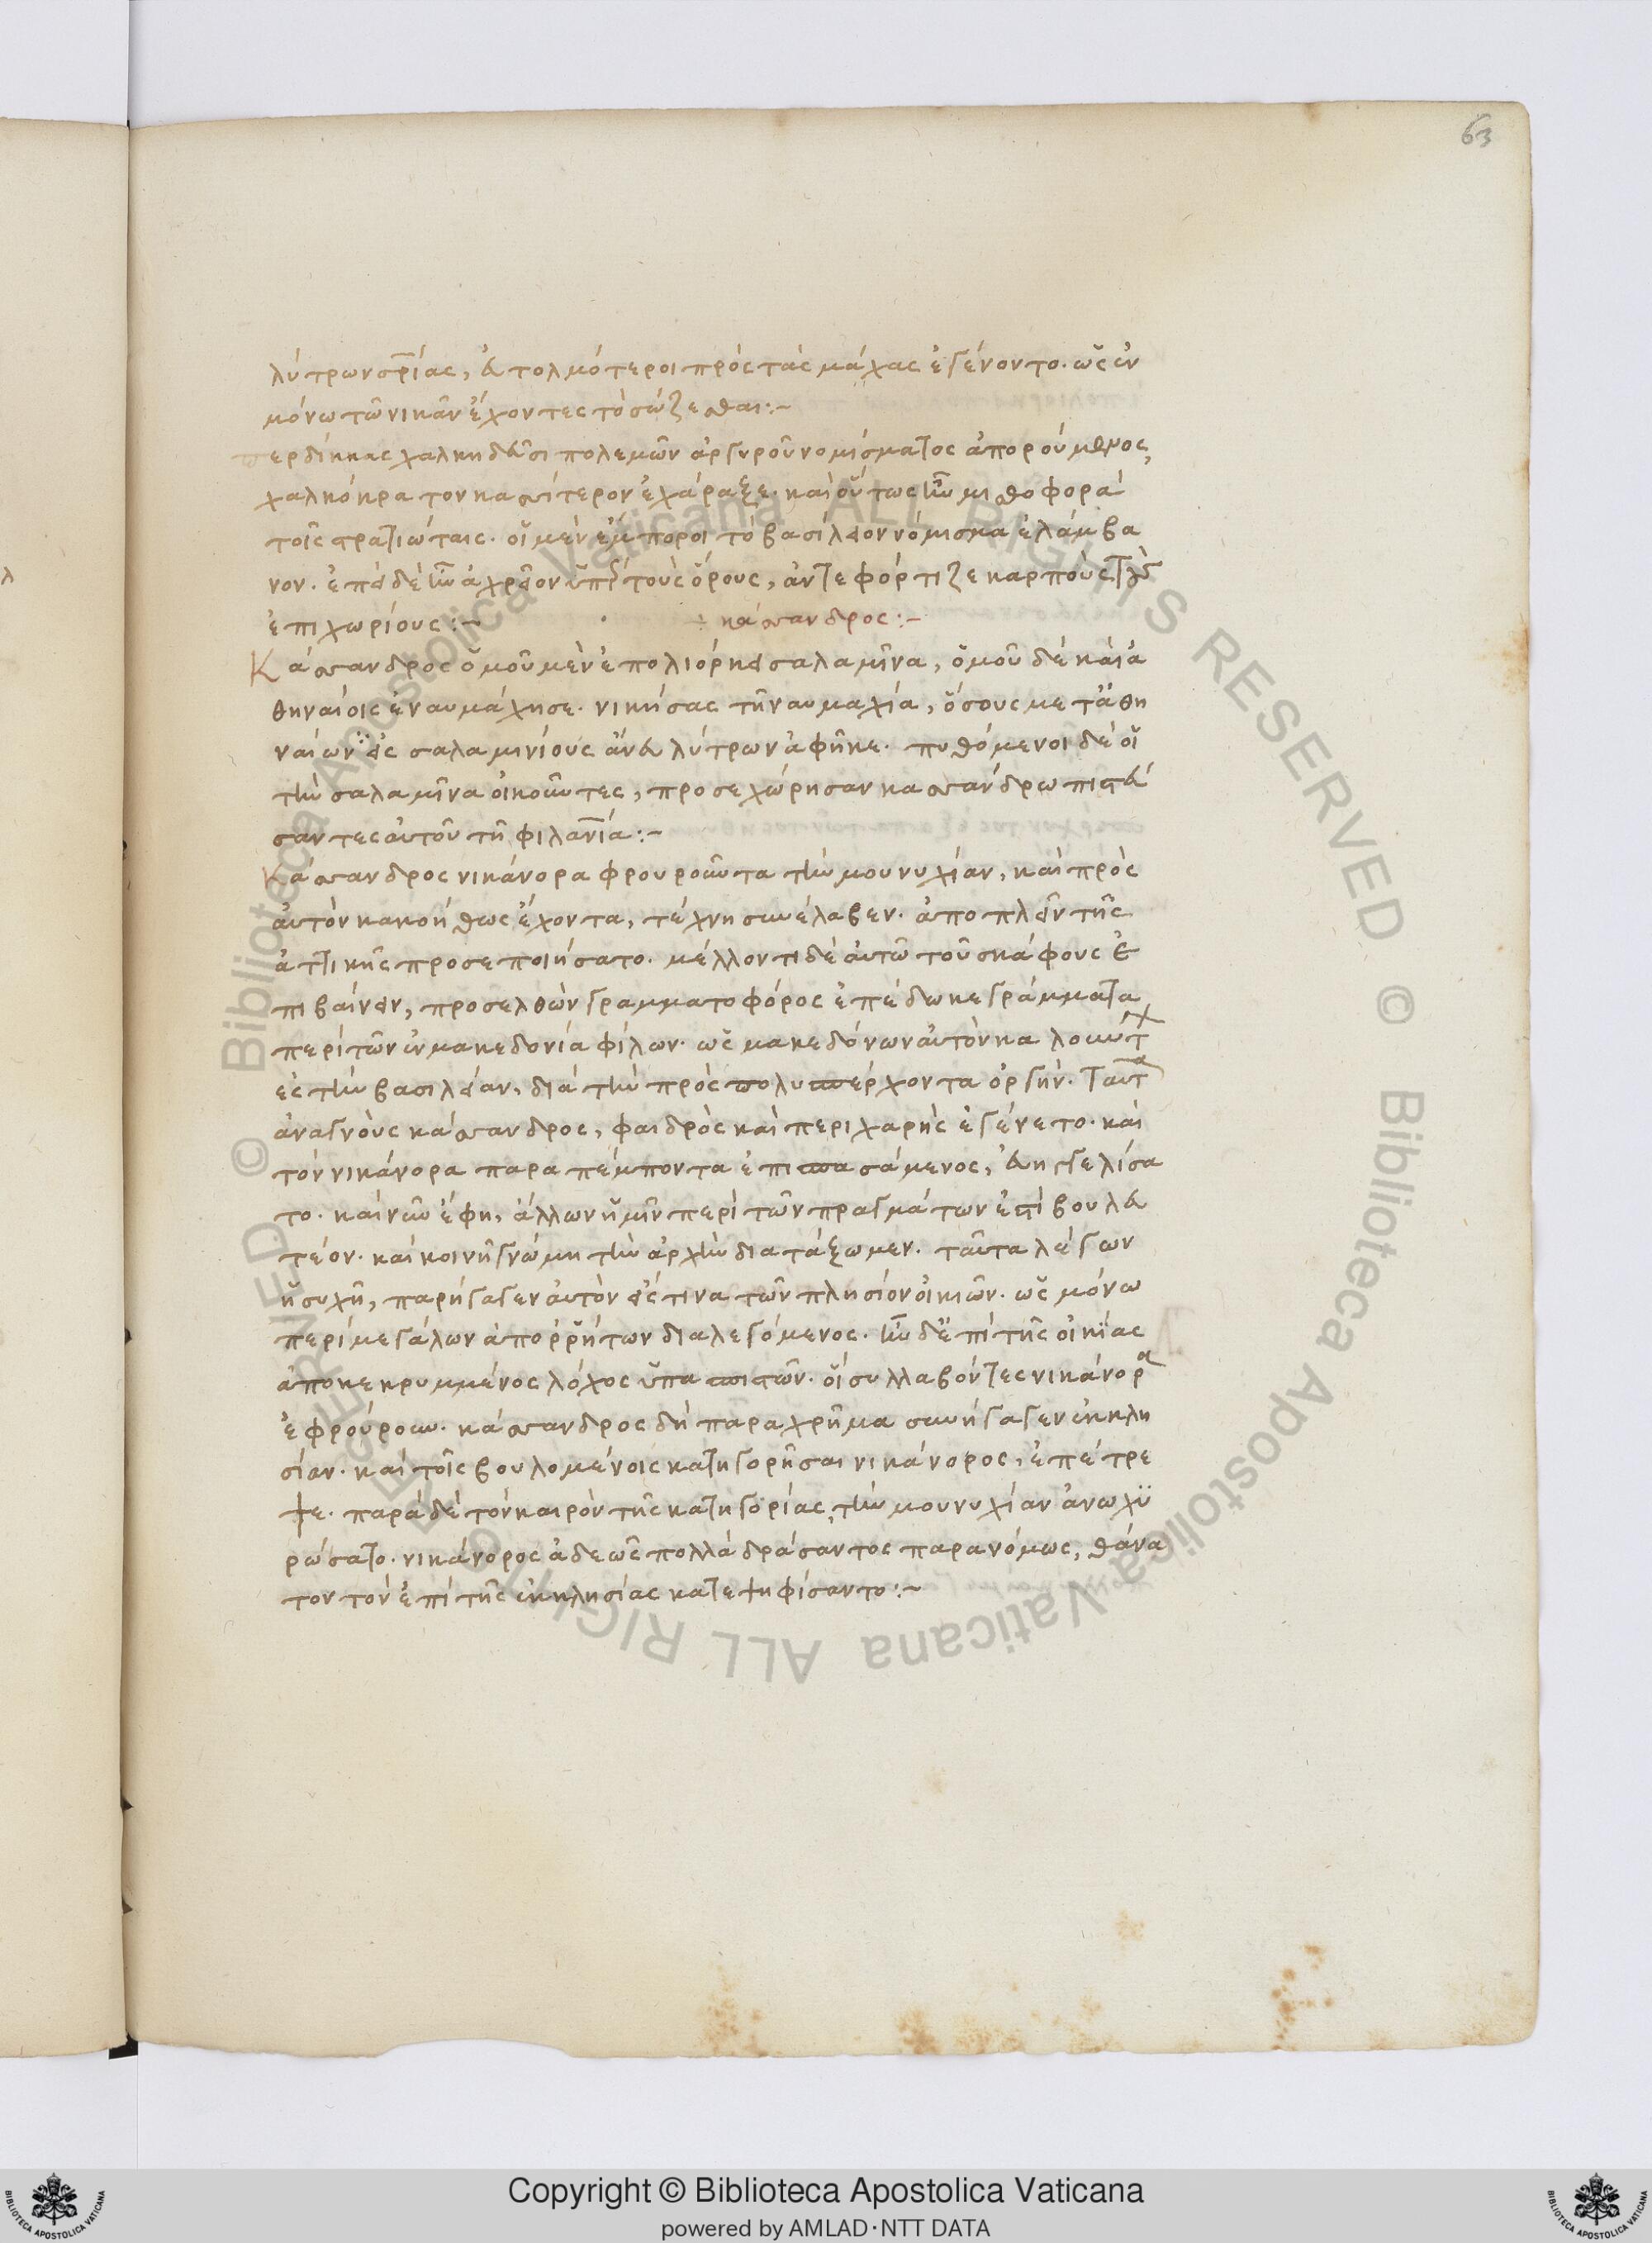 63
λύτρων σ̅ρ̅ίας, εὐτολμότεροι πρὸς τὰς μάχας ἐγένοντο. ὡς ἐν
μόνω τῶ νικᾶν ἔχοντες τὸ σώζεσθαι:~
περδίκκας χαλκηδεῦσι πολεμῶν ἀργυροῦ νομίσματος ἀπορούμενος,
χαλκόκρατον κασσίτερον ἐχάραξε. καὶ οὕτως ἦν μισθοφορὰ
τοῖς στρατιώταις. οἱ μὲν ἔμποροι τὸ βασίλειον νόμισμα ἐλάμβα
νον. ἐπεὶ δὲ ἦν ἀχρεῖον ὑπὲρ τοὺς ὅρους, ἀντεφόρτιζε καρποὺς τοὺς
ἐπιχωρίους:~ κάσσανδρος:~
Κάσσανδρος ὁμοῦ μὲν ἐπολιόρκει σαλαμῖνα, ὁμοῦ δὲ καὶ ἀ
θηναίοις ἐναυμάχησε. νικήσας τῆ ναυμαχία, ὅσους μετὰ ἀθη
ναίων εἷς σαλαμινίους ἄνευ λύτρων ἀφῆκε. πυθόμενοι δὲ οἱ
τὴν σαλαμῖνα οἰκοῦντες, προσεχώρησαν κασσάνδρω πιστεύ
σαντες αὐτοῦ τῆ φιλανίᾳ:~
Κάσσανδρος νικάνορα φρουροῦντα τὴν μουνυχίαν, καὶ πρὸς
αὐτὸν κακοήθως ἔχοντα, τέχνη συνέλαβεν. ἀποπλεῖν τῆς
ἀττικῆς προσεποιήσατο. μέλλοντι δὲ αὐτῶ τοῦ σκάφους ἐ
πιβαίνειν, προσελθὼν γραμματοφόρος ἐπέδωκε γράμματα
περὶ τῶν ἐν μακεδονία φίλων. ὡς μακεδόνων αὐτὸν καλούντων
ἐς τὴν βασιλείαν, διὰ τὴν πρὸς πολυπέρχοντα ὀργήν. ταῦτα
ἀναγνοὺς κάσσανδρος, φαιδρὸς καὶ περιχαρὴς ἐγένετο. καὶ
τὸν νικάνορα παραπέμποντα ἐπισπασάμενος, εὐηγγελίσα
το. καὶ νῦν ἔφη, ἄλλων ἡμῖν περὶ τῶν πραγμάτων ἐστὶ βουλευ
τέον. καὶ κοινῆ γνώμη τὴν ἀρχὴν διατάξωμεν. ταῦτα λέγων
ἡσυχῆ, παρήγαγεν αὐτὸν εἴς τινα τῶν πλησίον οἰκιῶν. ὡς μόνω
περὶ μεγάλων ἀπορρήτων διαλεγόμενος. ἦν δὲ ἐπὶ τῆς οἰκίας
ἀποκεκρυμμένος λόχος ὑπασπιστῶν. οἳ συλλαβόντες νικάνορα
ἐφρούρουν. κάσσανδρος δὴ παραχρῆμα συνήγαγεν ἐκκλη
σίαν. καὶ τοῖς βουλομένοις κατηγορῆσαι νικάνορος, ἐπέτρε
ψε. παρὰ δὲ τὸν καιρὸν τῆς κατηγορίας, τὴν μουνυχίαν ἀνωχυ
ρώσατο. νικάνορος ἀδεῶς πολλὰ δράσαντος παρανόμως, θάνα
τον τὸν ἐπὶ τῆς ἐκκλησίας κατεψηφίσαντο:~
© Biblioteca Apostolica Vaticana ALL RIGHTS RESERVED
© Biblioteca Apostolica Vaticana ALL RIGHTS RESERVED
BIBLIOTECA APOSTOLICA VATICANA
Copyright © Biblioteca Apostolica Vaticana
powered by AMLAD·NTT DATA
BIBLIOTECA APOSTOLICA VATICANA